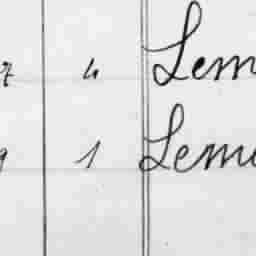 7 4 Lem
9 1 Leme